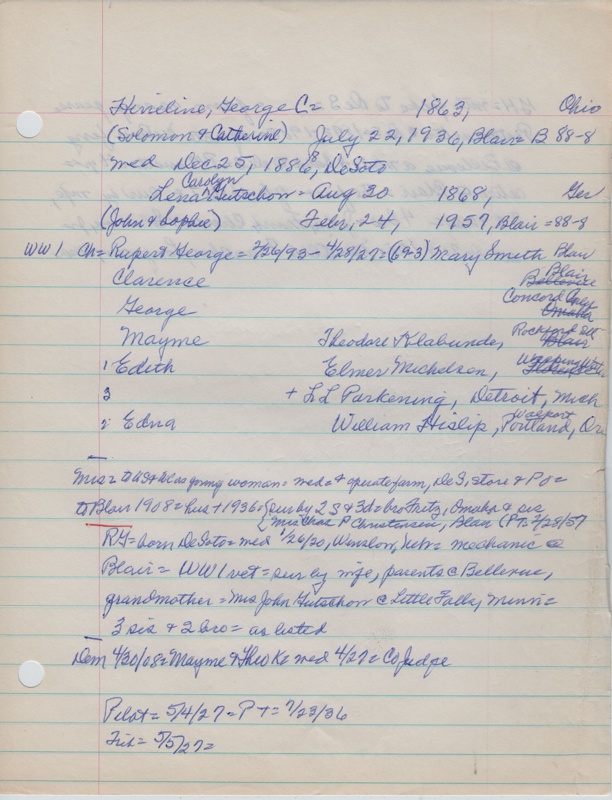 Hineline, George C. = 1863, Ohio
(Solomon & Catherine) July 22, 1936, Blair = B 88-8
med Dec 25, 1886, DeSoto
Carolyn
Lena Gutschow = Aug 30 1868, Ger
(John & Sophie) Febr, 24, 1957, Blair = 88-8
WW1 Ch = Rupert George = 2/26/93 - 4/28/27 = (69-3) Mary Smuth Blair
Clarence Blair
George Concord Omaha
Mayme Theodore Klabunde, Rockford Ill Blair
1 Edith Elmer Michelson,
3 + L L Parkening, Detroit, Mich
2 Edna William Hislip, Portland, Ore
Mrs = to US & WC as young woman = med = & operate farm, DeS, store & PO =
to Blair 1908 = Hus + 1936 = sur by 2 S & 3d = bro Fritz, Omaha & sis
Mrs Chas P Christensen, Blair (PT = 2/28/57
RG = born DeSoto = med 1/26/20, Winslow, = mechanic @
Blair = WW1 vet = sur by wife, parents @ Bellevue,
grandmother = Mrs John Gutschow @ Little Falls, Minn =
3 sis & 2 bro = as listed
Dem 4/30/08 = Mayme & Theo K = med 4/27 = Co Judge
Pilot = 5/4/27 = P T = 7/23/36
5/5/27 =